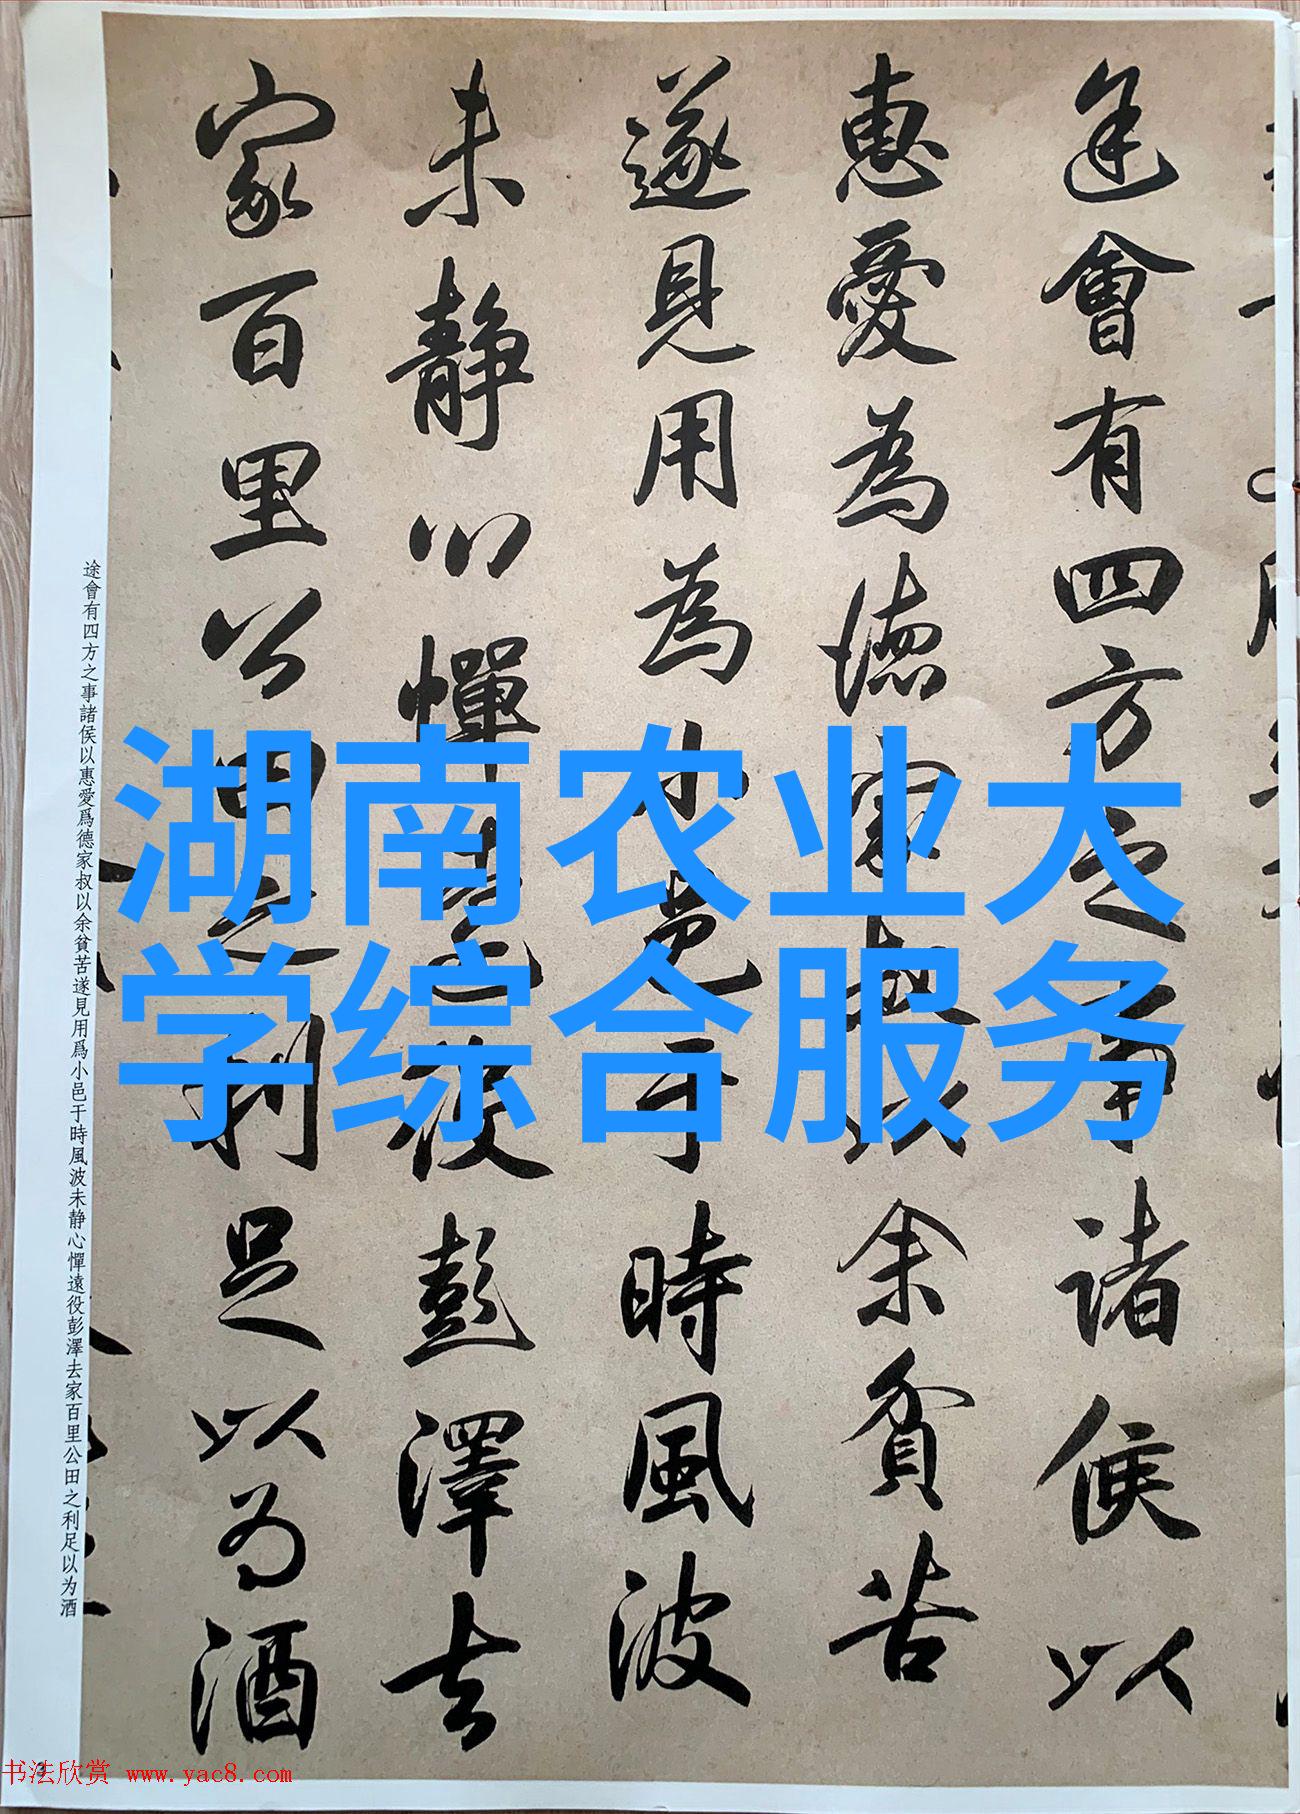 途會有四方之事諸侯以
惠愛為德家叔以余貧苦
遂見用為小邑于時風波
未静心憚遠役彭澤去
家百里公田之利足以为酒
途會有四方之事諸侯以惠愛爲德家叔以余貧苦遂見用爲小邑于時風波未静心憚遠役彭澤去家百里公田之利足以为酒
湖南农业大
学综合服务
书法欣赏 www.yac8.com